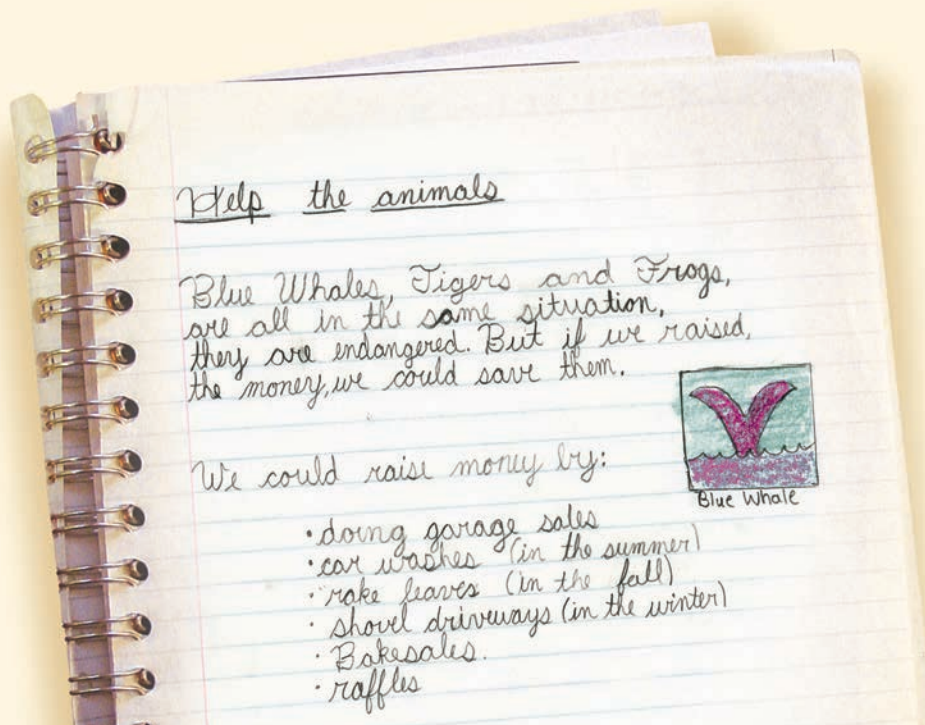 Help the animals
Blue Whales, Tigers and Frogs,
are all in the same situation,
they are endangered. But if we raised,
the money, we could save them.
Blue Whale
We could raise money by:
• doing garage sales
• car washes (in the summer)
• rake leaves (in the fall)
• shovel driveways (in the winter)
• Bakesales.
• raffles